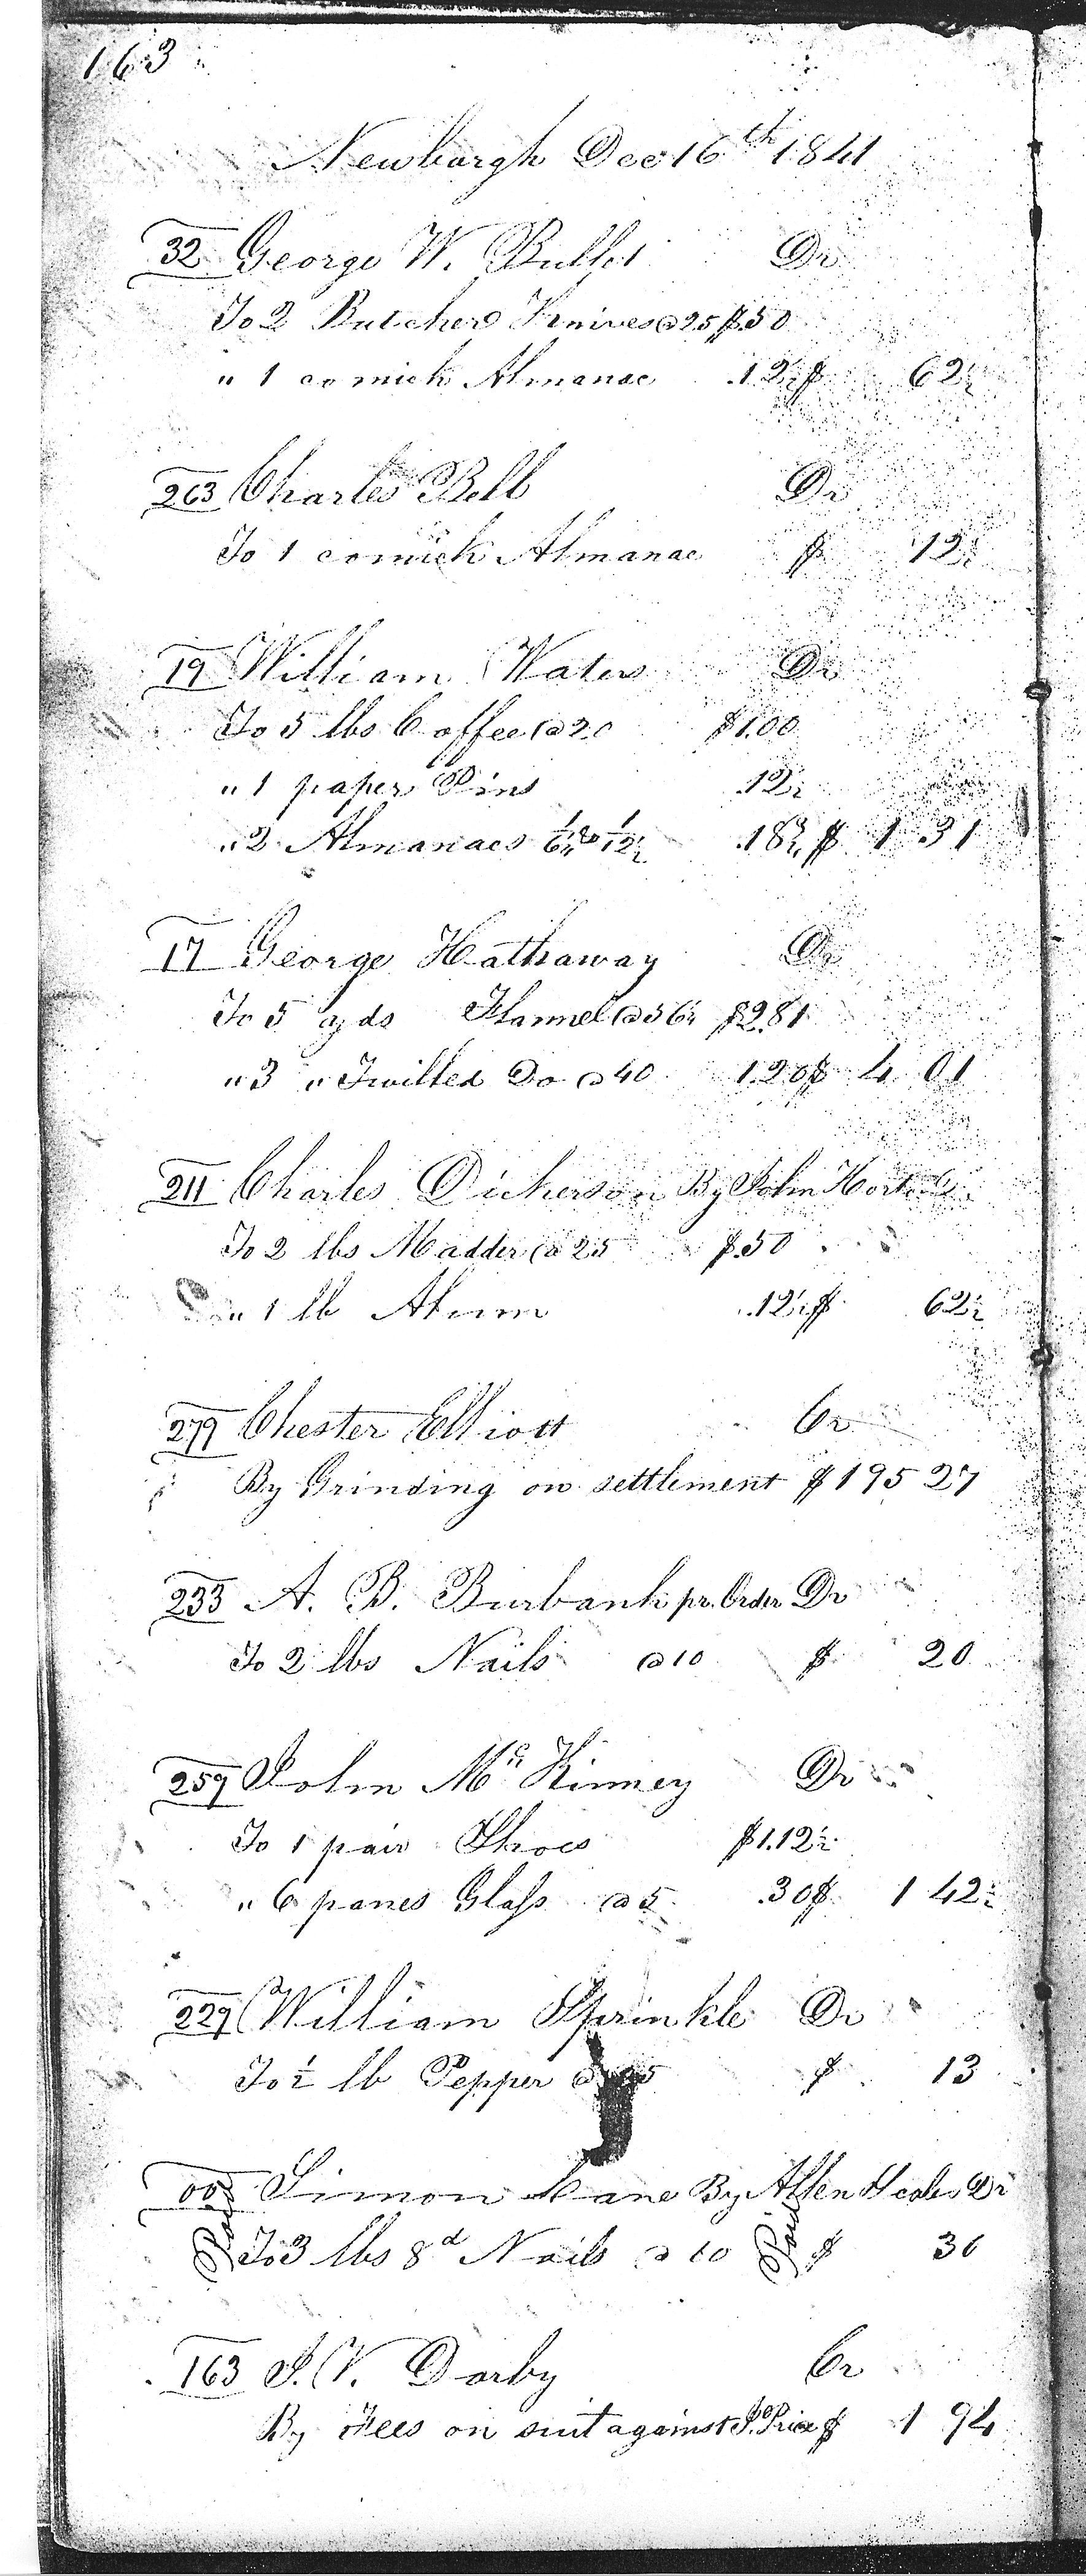 163
Newburgh Dec 16th 1841
32 George W. Dr
To 2 Butcher Knives @ 25 $.50
" 1 comick Almanac .12½ $ 62½
263 Charles Bell Dr
To 1 comick Almanac $ 12½
19 William Waters Dr
To 5 lbs Coffee @ 20 $1.00
" 1 paper Pins .12½
" 2 Almanacs 1/6¼ & 1/12½ .18¾ $ 1 31
17 George Hathaway Dr
To 5 yds Flannel @ 56¼ $2.81
" 3 " Twilled Do @ 40 1.20 $ 4 01
211 Charles Dickerson By John
To 2 lbs Madder @ 25 $.50
" 1 lb Alum .12½ $ 62½
279 Chester Elliott Cr
By Grinding on settlement $195 27
233 A. B. Burbank pr. Order Dr
To 2 lbs Nails @ 10 $ 20
259 John McKinney Dr
To 1 pair Shoes $1.12½
" 6 panes Glass @ 5 .30 $ 1 42½
229 William Sprinkle Dr
To ½ lb Pepper @ 25 $ 13
00 Simon Cane By Allen Dr
Paid To 3 lbs 8d Nails @ 10 Paid $ 30
163 J. V. Darby Cr
By Fees on suit against J. Price $ 1 94